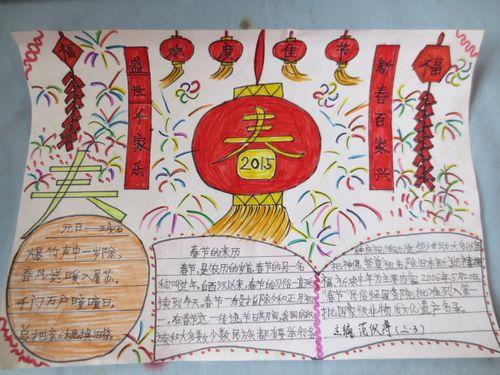 欢度佳节
福
盛世千家乐
新春百家兴
福
春
2015
春
元日
爆竹声中一岁除,
春风送暖入屠苏。
千门万户曈曈日,
总把新桃换旧符。
春节的来历
春节,是农历的岁首,春节的另一名
称叫过年。自西汉以来,春节的习俗一直延
续到今天。春节一般指除夕和正月初
一。在春节这一传统节日期间,我国的汉
族和大多数少数民族都要举行各
福、祈求丰年为主要内容。2006年5月20日,
"春节"民俗经国务院批准列入第一
批国家级非物质文化遗产名录。
主编